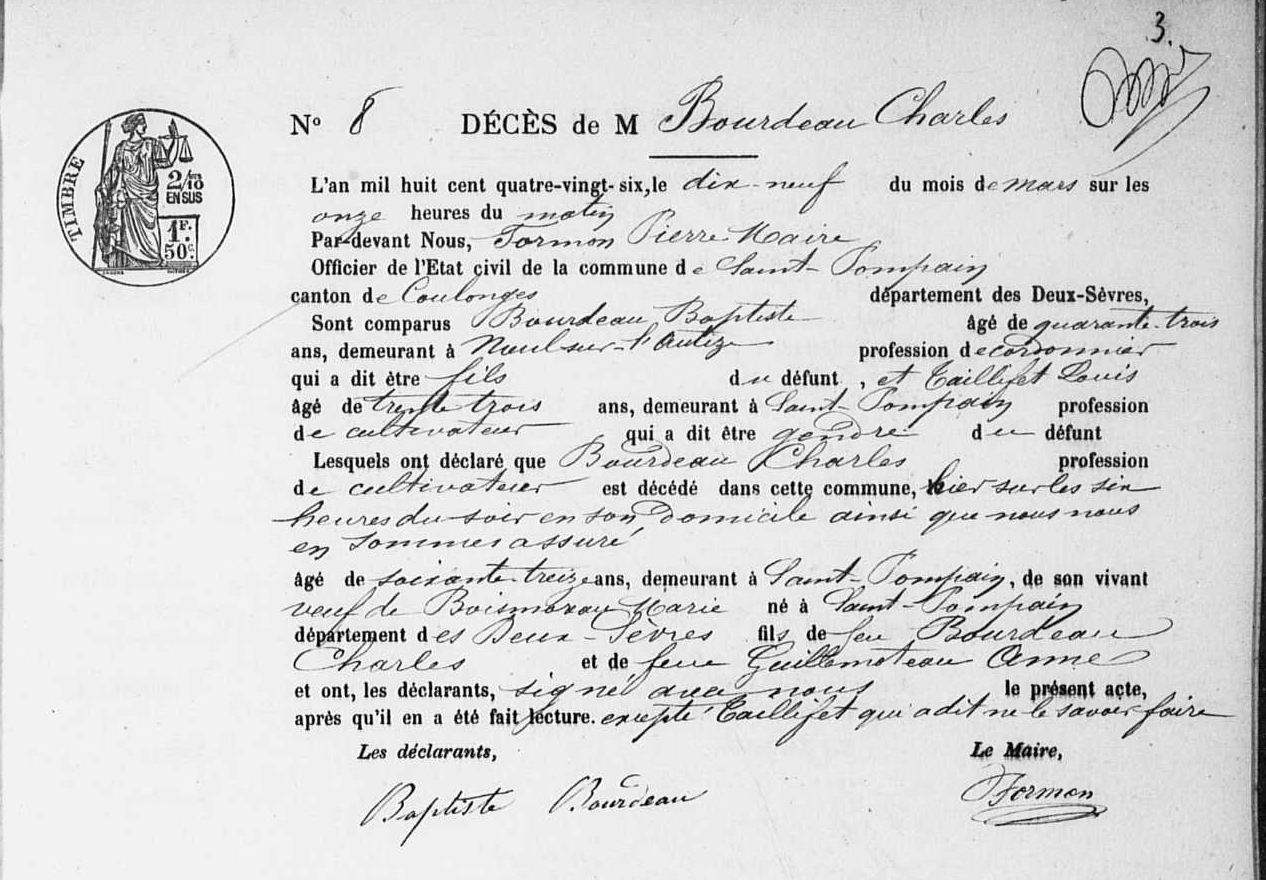 3.
TIMBRE
2/10 EN SUS
1F. 50c.
N° 8 DÉCÈS de M Bourdeau Charles
L'an mil huit cent quatre-vingt-six, le dix-neuf du mois de mars sur les
onze heures du matin
Par-devant Nous, Formon Pierre Maire
Officier de l'Etat civil de la commune de Saint-Pompain
canton de Coulonges département des Deux-Sèvres,
Sont comparus Bourdeau Baptiste âgé de quarante-trois
ans, demeurant à Nieul-sur-l'Autize profession de cordonnier
qui a dit être fils du défunt, et Taillefet Louis
âgé de trente trois ans, demeurant à Saint-Pompain profession
de cultivateur qui a dit être gendre du défunt
Lesquels ont déclaré que Bourdeau Charles profession
de cultivateur est décédé dans cette commune, hier sur les six
heures du soir en son domicile ainsi que nous nous
en sommes assuré,
âgé de soixante-treize ans, demeurant à Saint-Pompain, de son vivant
veuf de Boismoreau Marie né à Saint-Pompain
département des Deux-Sèvres fils de feu Bourdeau
Charles et de feue Guillemoteau Anne
et ont, les déclarants, signé avec nous le présent acte,
après qu'il en a été fait lecture. excepté Taillefet qui a dit ne le savoir faire
Les déclarants, Le Maire,
Baptiste Bourdeau Formon